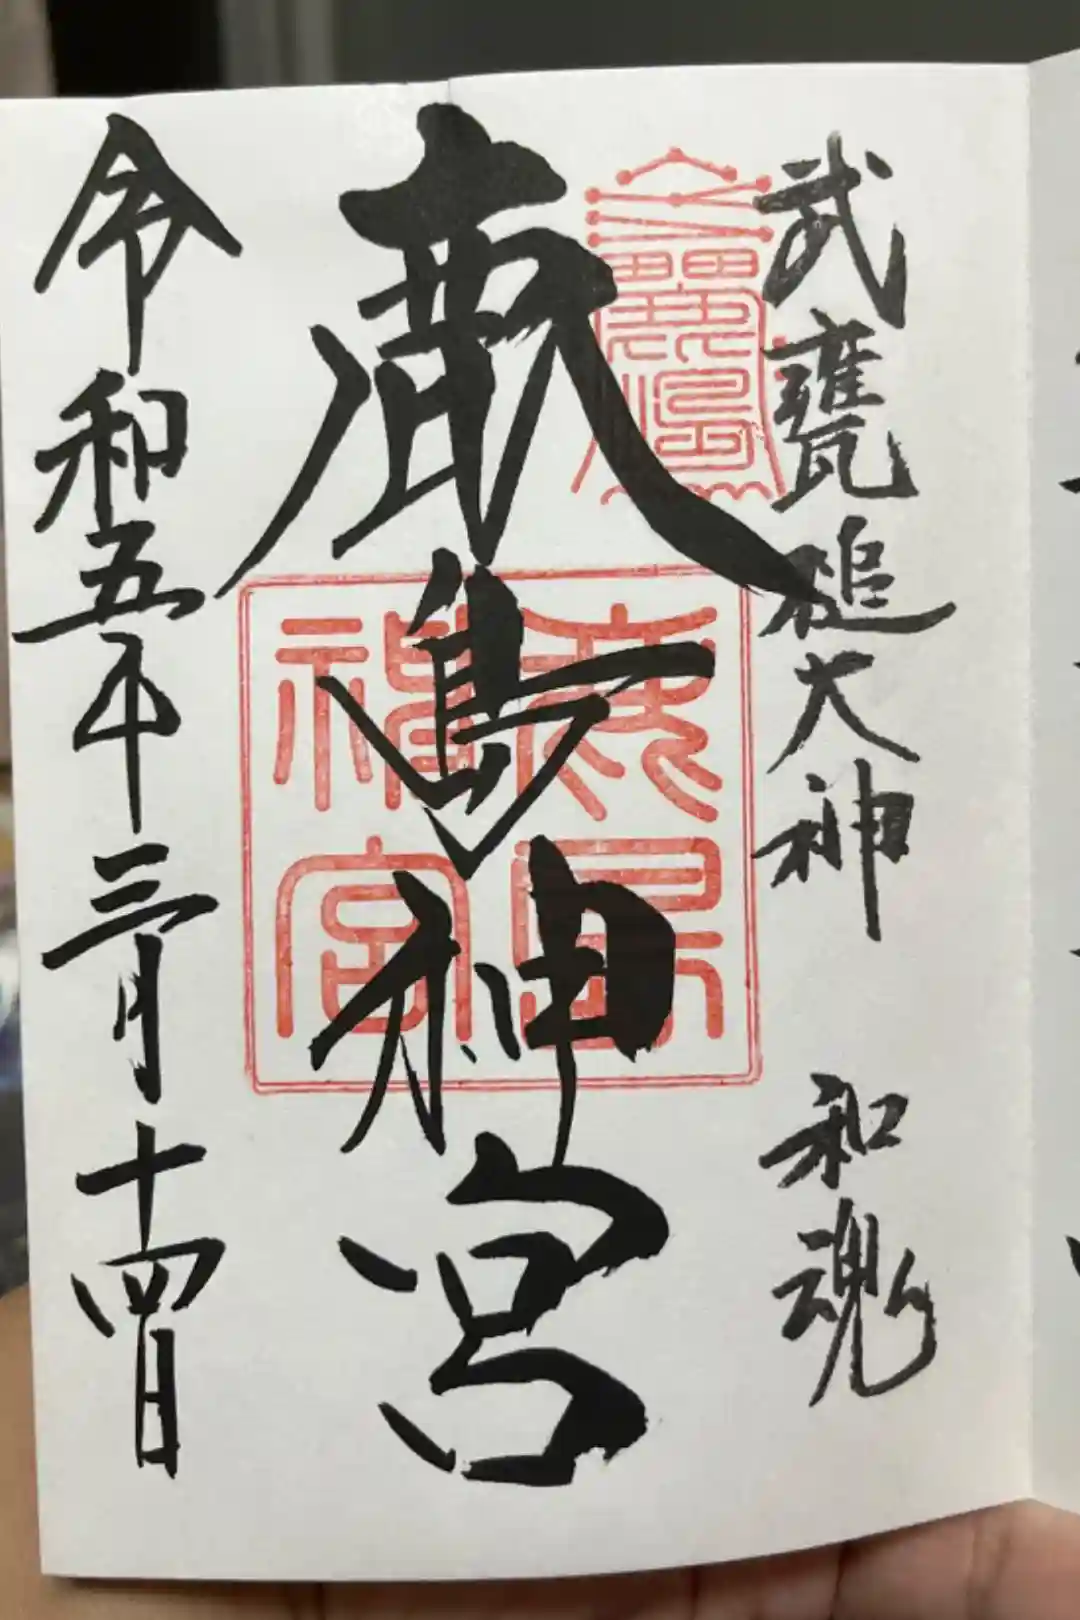 武甕槌大神 和魂
鹿島神宮
鹿島
神宮
令和五年三月十四日